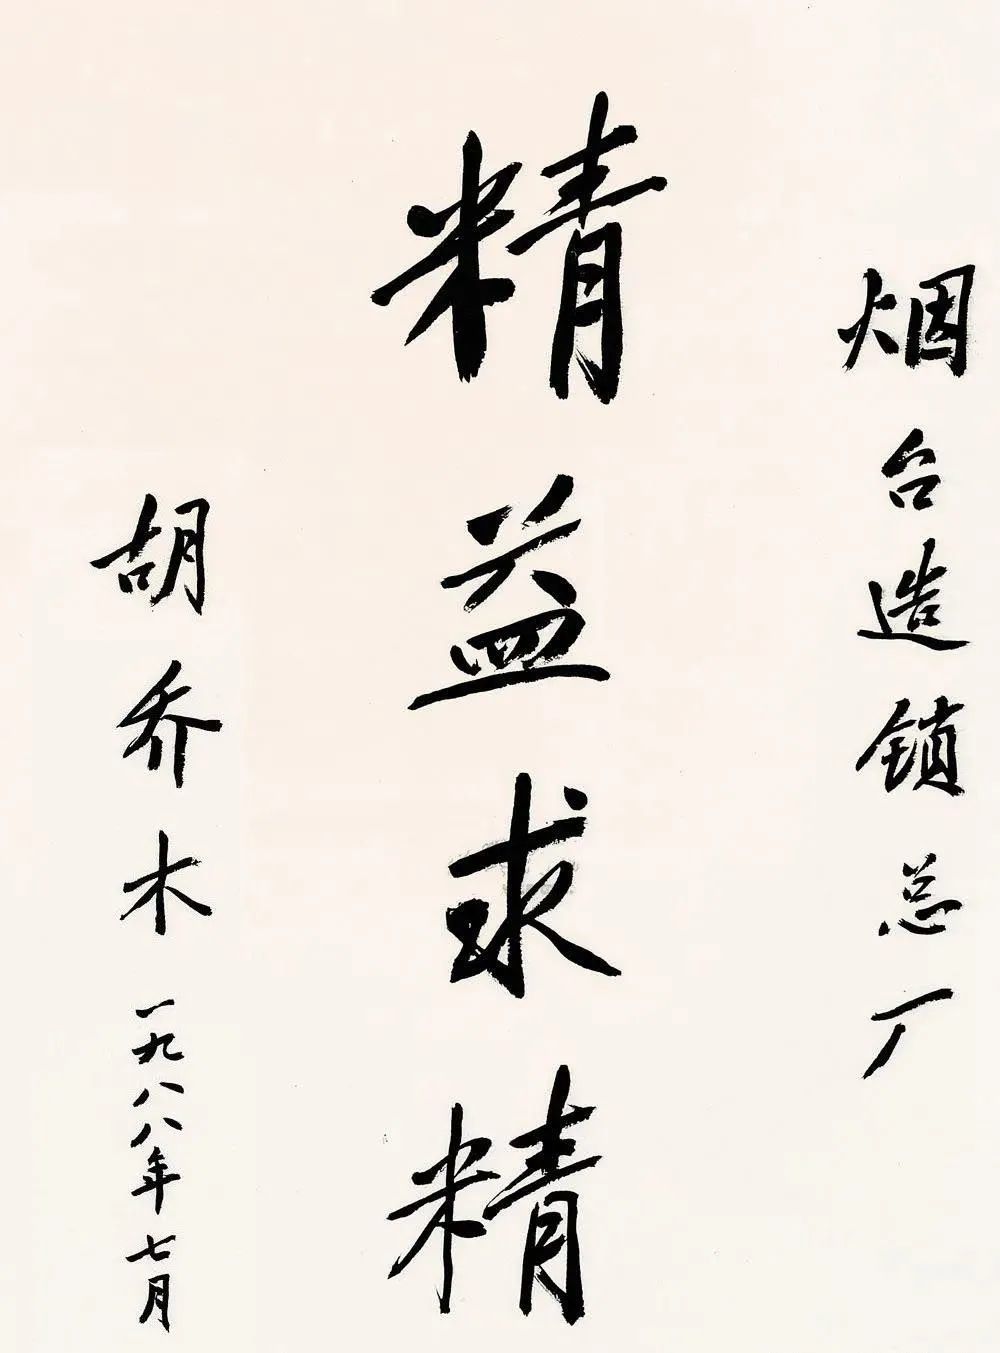 烟台造锁总厂
精益求精
胡乔木
一九八八年七月